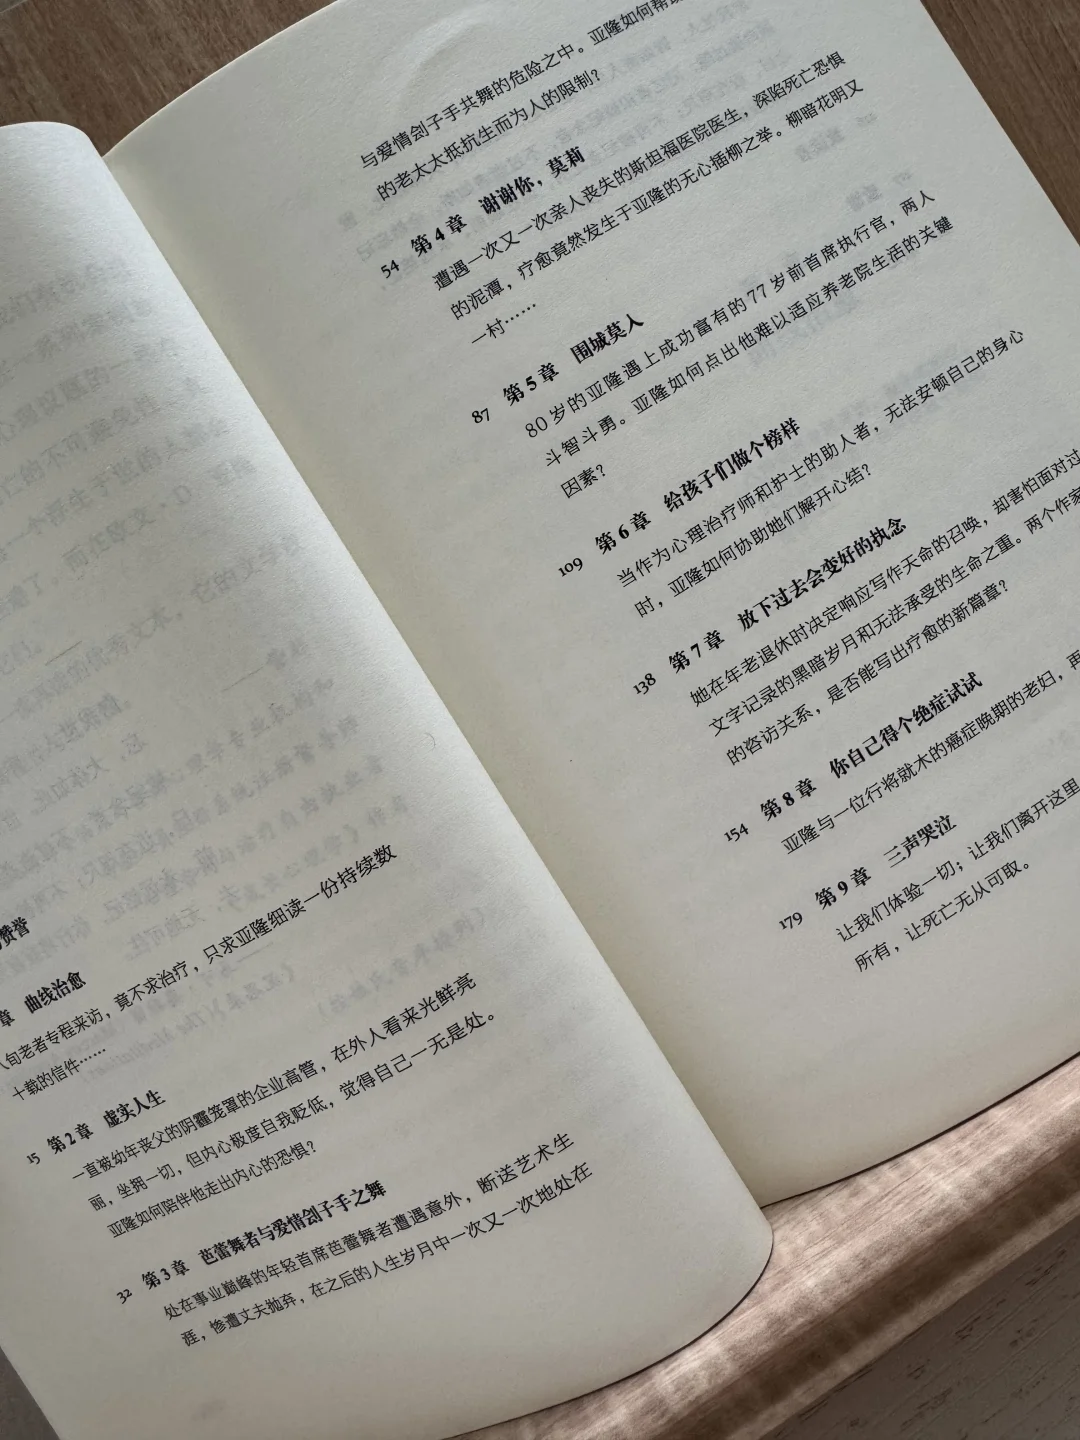 赞誉
章 曲线治愈
旬老者专程来访，竟不求治疗，只求亚隆细读一份持续数
十载的信件……
15 第2章 虚实人生
一直被幼年丧父的阴霾笼罩的企业高管，在外人看来光鲜亮
丽，坐拥一切，但内心极度自我贬低，觉得自己一无是处。
亚隆如何陪伴他走出内心的恐惧？
32 第3章 芭蕾舞者与爱情刽子手之舞
处在事业巅峰的年轻首席芭蕾舞者遭遇意外，断送艺术生
涯，惨遭丈夫抛弃，在之后的人生岁月中一次又一次地处在
与爱情刽子手共舞的危险之中。亚隆如何帮
的老太太抵抗生而为人的限制？
54 第4章 谢谢你，莫莉
遭遇一次又一次亲人丧失的斯坦福医院医生，深陷死亡恐惧
的泥潭，疗愈竟然发生于亚隆的无心插柳之举。柳暗花明又
一村……
87 第5章 围城莫入
80岁的亚隆遇上成功富有的77岁前首席执行官，两人
斗智斗勇。亚隆如何点出他难以适应养老院生活的关键
因素？
109 第6章 给孩子们做个榜样
当作为心理治疗师和护士的助人者，无法安顿自己的身心
时，亚隆如何协助她们解开心结？
138 第7章 放下过去会变好的执念
她在年老退休时决定响应写作天命的召唤，却害怕面对过
文字记录的黑暗岁月和无法承受的生命之重。两个作家
的咨访关系，是否能写出疗愈的新篇章？
154 第8章 你自己得个绝症试试
亚隆与一位行将就木的癌症晚期的老妇，再
179 第9章 三声哭泣
让我们体验一切；让我们离开这里
所有，让死亡无从可取。